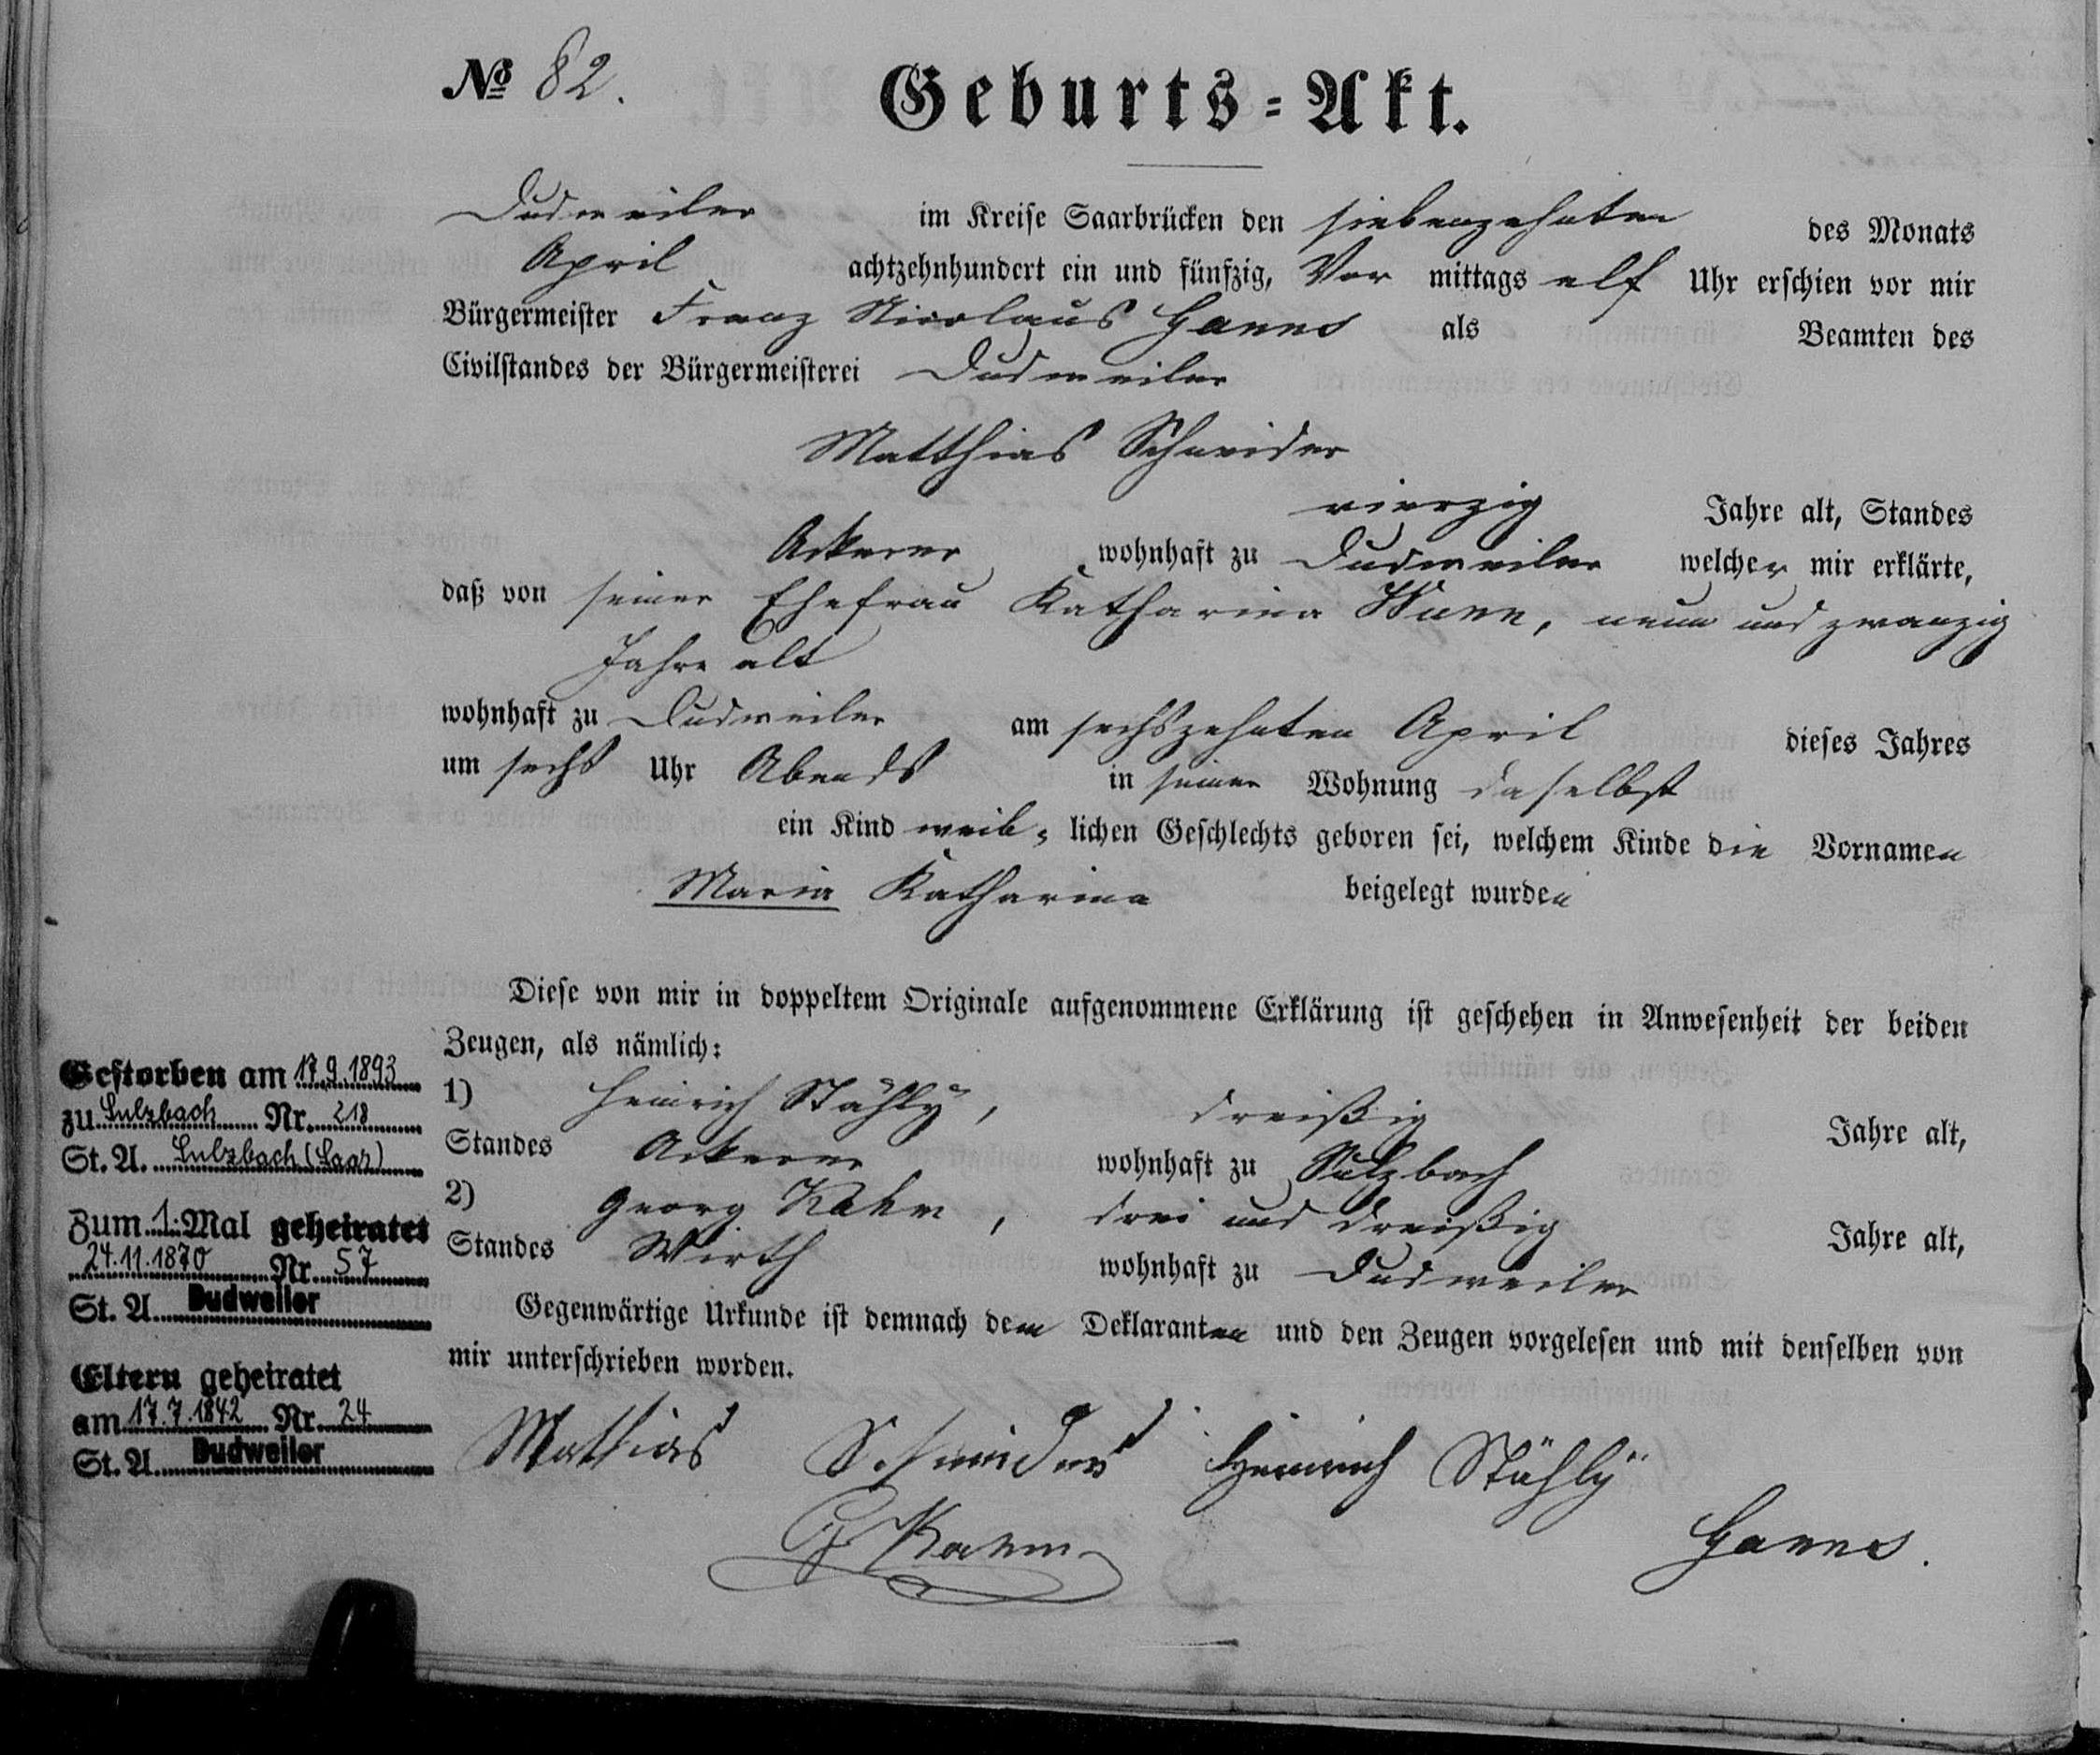 № 82.
Geburts-Akt.
Dudweiler im Kreise Saarbrücken den siebenzehnten des Monats
April achtzehnhundert ein und fünfzig, Vor mittags elf Uhr erschien vor mir
Bürgermeister Franz Nicolaus Hanns als Beamten des
Civilstandes der Bürgermeisterei Dudweiler
Matthias Schneider
vierzig Jahre alt, Standes
Ackerer wohnhaft zu Dudweiler welcher mir erklärte,
daß von seiner Ehefrau Katharina Wunn, neun und zwanzig
Jahre alt
wohnhaft zu Dudweiler am sechszehnten April dieses Jahres
um sechs Uhr Abends in seiner Wohnung daselbst
ein Kind weib- lichen Geschlechts geboren sei, welchem Kinde die Vornamen
Maria Katharina beigelegt wurden
Diese von mir in doppeltem Originale aufgenommene Erklärung ist geschehen in Anwesenheit der beiden
Zeugen, als nämlich:
1) Heinrich Stähly, dreißig Jahre alt,
Standes Ackerer wohnhaft zu Sulzbach
2) Georg Rahm, drei und dreißig Jahre alt,
Standes Wirth wohnhaft zu Dudweiler
Gegenwärtige Urkunde ist demnach dem Deklaranten und den Zeugen vorgelesen und mit denselben von
mir unterschrieben worden.
Mathias Schneider Heinrich Stähly
G Rahm
Hanns.
Gestorben am 17.9.1893
zu Sulzbach Nr. 218
St. A. Sulzbach (Saar)
Zum 1. Mal geheiratet
24.11.1870 Nr. 57
St. A. Dudweiler
Eltern geheiratet
am 17.7.1842 Nr. 24
St. A. Dudweiler